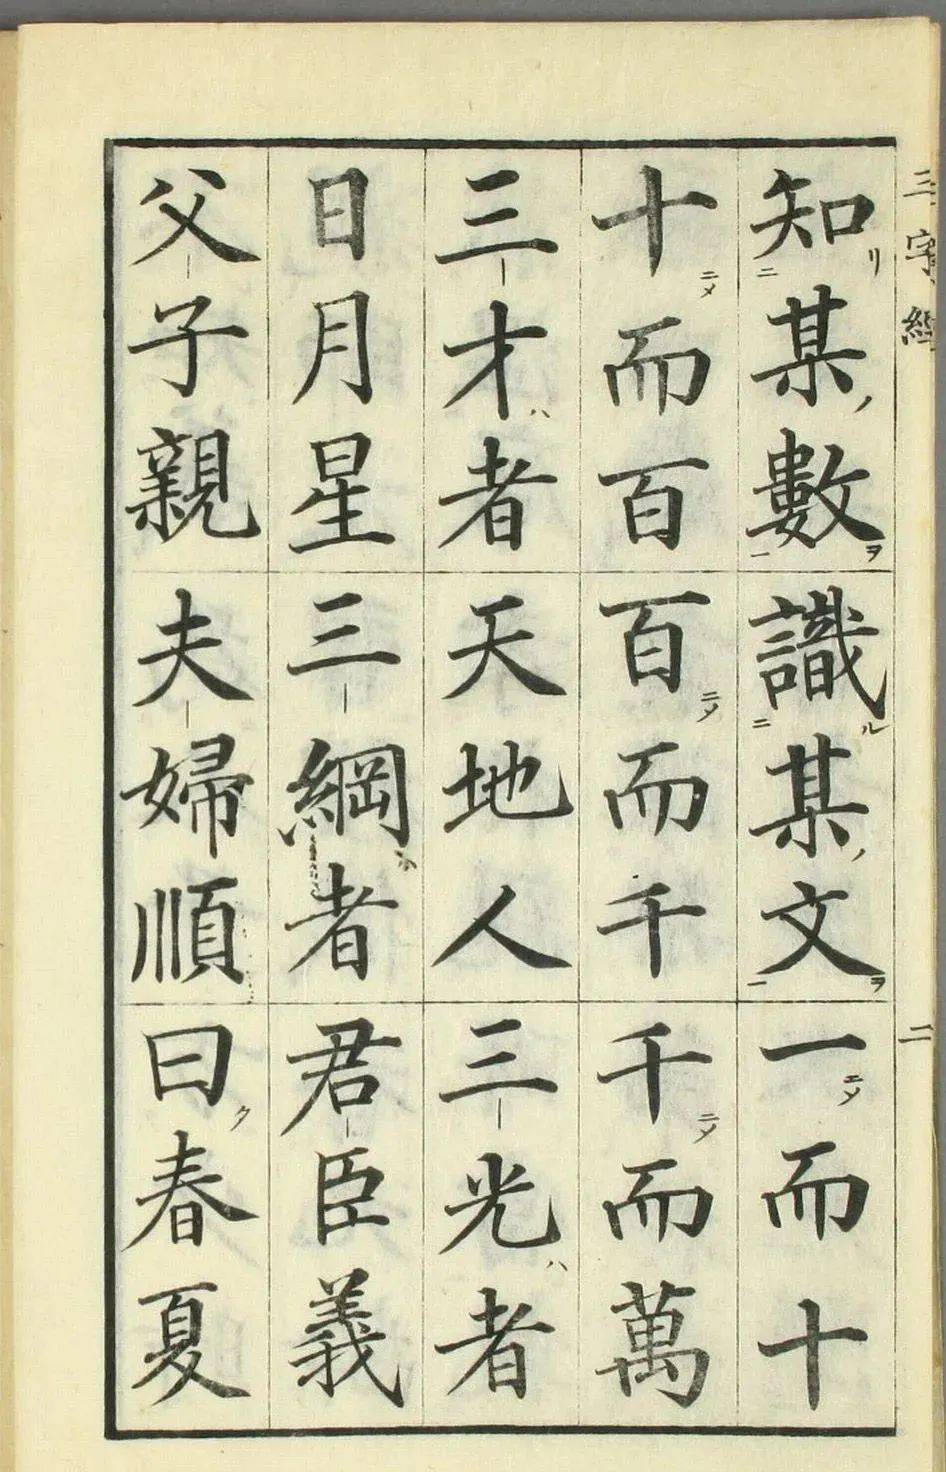 三字經
二
知リ二某ノ數ヲ一識ル二某ノ文ヲ一一ニメ而十
十ニメ而百百ニメ而千千ニメ而萬
三才ハ者天地人三光ハ者
日月星三綱ハ者君臣義
父子親夫婦順曰ク春夏